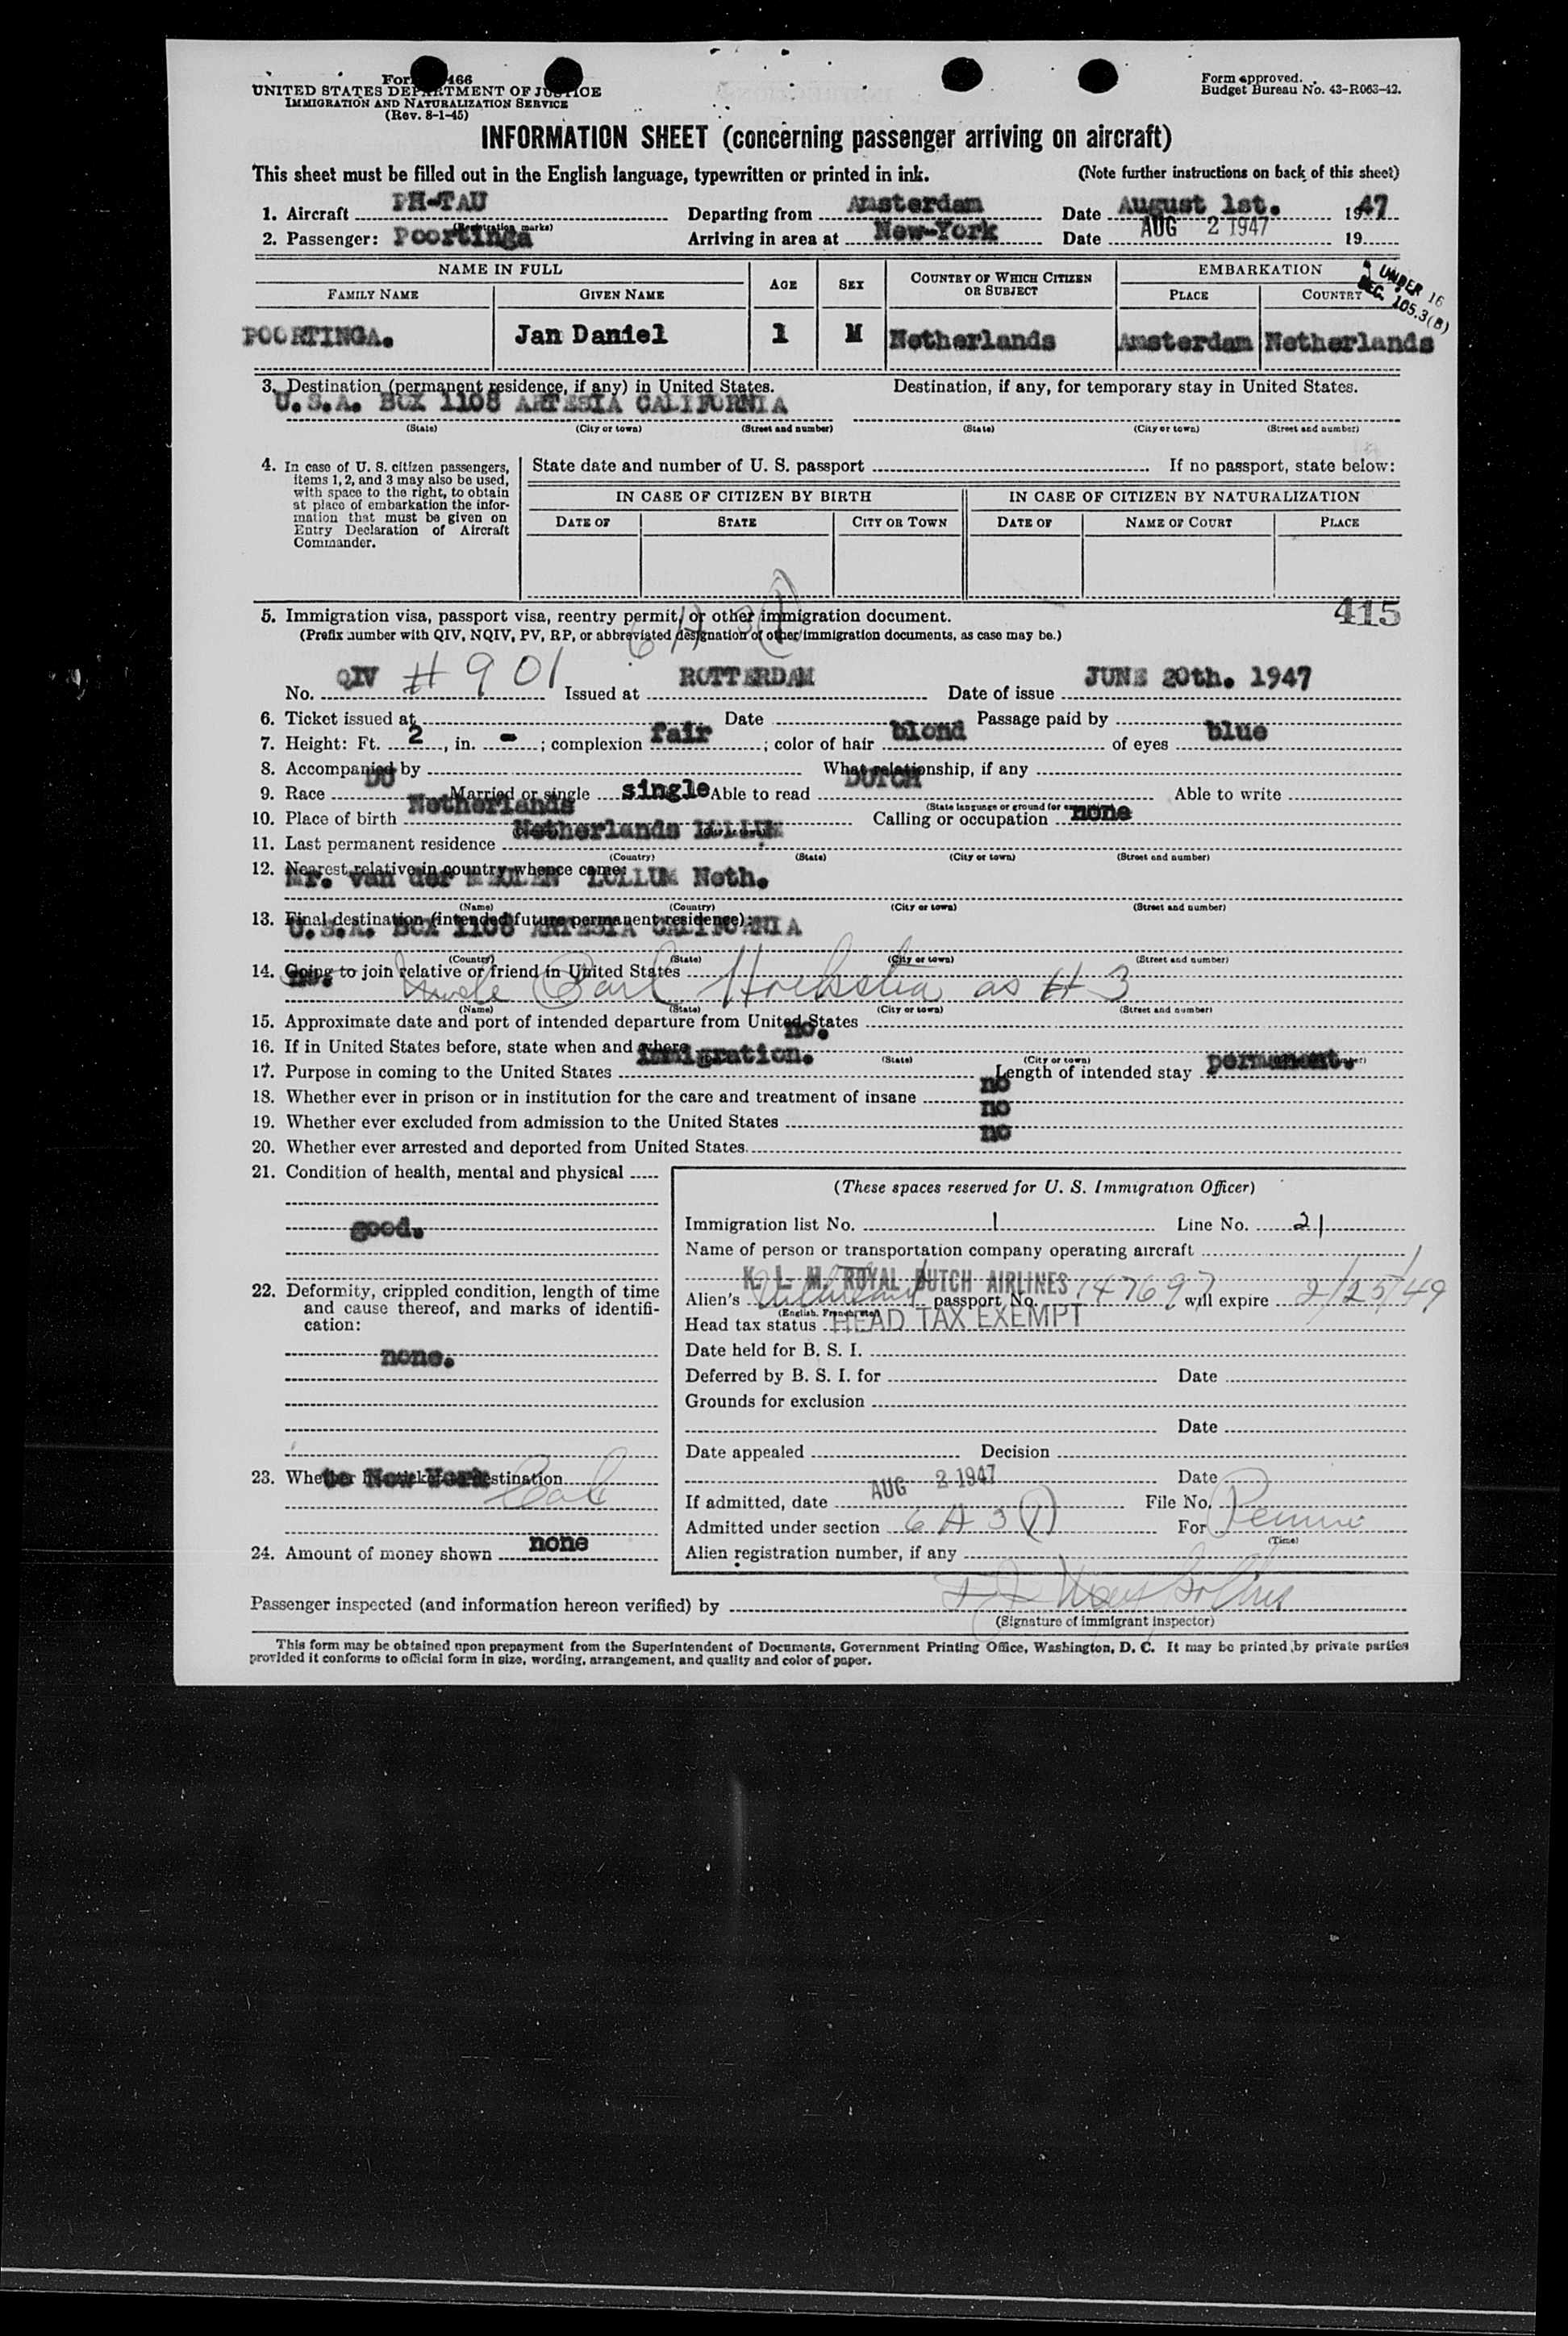 Form I-466
UNITED STATES DEPARTMENT OF JUSTICE
IMMIGRATION AND NATURALIZATION SERVICE
(Rev. 8-1-45)
Form approved.
Budget Bureau No. 43-R063-42.
INFORMATION SHEET (concerning passenger arriving on aircraft)
This sheet must be filled out in the English language, typewritten or printed in ink. (Note further instructions on back of this sheet)
1. Aircraft PH-TAU Departing from Amsterdam Date August 1st. 1947
(Registration marks)
2. Passenger: Poortinga Arriving in area at New-York Date AUG 2 1947 19
NAME IN FULL AGE SEX COUNTRY OF WHICH CITIZEN OR SUBJECT EMBARKATION
FAMILY NAME GIVEN NAME PLACE COUNTRY
UNDER 16
SEC. 105.3(B)
POORTINGA. Jan Daniel 1 M Netherlands Amsterdam Netherlands
3. Destination (permanent residence, if any) in United States. Destination, if any, for temporary stay in United States.
U.S.A. BOX 1108 ARTESIA CALIFORNIA
(State) (City or town) (Street and number) (State) (City or town) (Street and number)
4. In case of U. S. citizen passengers, items 1, 2, and 3 may also be used, with space to the right, to obtain at place of embarkation the information that must be given on Entry Declaration of Aircraft Commander.
State date and number of U. S. passport If no passport, state below:
IN CASE OF CITIZEN BY BIRTH IN CASE OF CITIZEN BY NATURALIZATION
DATE OF STATE CITY OR TOWN DATE OF NAME OF COURT PLACE
415
5. Immigration visa, passport visa, reentry permit, or other immigration document.
6 A 3 (1)
(Prefix number with QIV, NQIV, PV, RP, or abbreviated designation of other immigration documents, as case may be.)
No. QIV # 901 Issued at ROTTERDAM Date of issue JUNE 20th. 1947
6. Ticket issued at Date Passage paid by
7. Height: Ft. 2, in. - ; complexion fair ; color of hair blond of eyes blue
8. Accompanied by What relationship, if any
9. Race DU Married or single single Able to read DUTCH Able to write
10. Place of birth Netherlands Calling or occupation none
11. Last permanent residence Netherlands LOLLUM
(Country) (State) (City or town) (Street and number)
12. Nearest relative in country whence came:
Mr. van der MEULEN LOLLUM Neth.
(Name) (Country) (City or town) (Street and number)
13. Final destination (intended future permanent residence):
U.S.A. BOX 1108 ARTESIA CALIFORNIA
(Country) (State) (City or town) (Street and number)
14. Going to join relative or friend in United States
no. Uncle Carl Hoekstra as # 3
(Name) (State) (City or town) (Street and number)
15. Approximate date and port of intended departure from United States
16. If in United States before, state when and where no.
(State) (City or town)
17. Purpose in coming to the United States immigration. Length of intended stay permanent.
18. Whether ever in prison or in institution for the care and treatment of insane no
19. Whether ever excluded from admission to the United States no
20. Whether ever arrested and deported from United States. no
21. Condition of health, mental and physical
good.
22. Deformity, crippled condition, length of time and cause thereof, and marks of identification:
none.
23. Whether has ticket to destination
to New York Cal
24. Amount of money shown none
(These spaces reserved for U. S. Immigration Officer)
Immigration list No. 1 Line No. 21
Name of person or transportation company operating aircraft
K. L. M. ROYAL DUTCH AIRLINES
Alien's Netherland passport No. 147697 will expire 2/25/49
(English, French, etc.)
Head tax status HEAD TAX EXEMPT
Date held for B. S. I.
Deferred by B. S. I. for Date
Grounds for exclusion
Date
Date appealed Decision
Date
If admitted, date AUG 2 1947 File No.
Admitted under section 6 A 3 (1) For
(Time)
Alien registration number, if any
Passenger inspected (and information hereon verified) by
(Signature of immigrant inspector)
This form may be obtained upon prepayment from the Superintendent of Documents, Government Printing Office, Washington, D. C. It may be printed by private parties
provided it conforms to official form in size, wording, arrangement, and quality and color of paper.